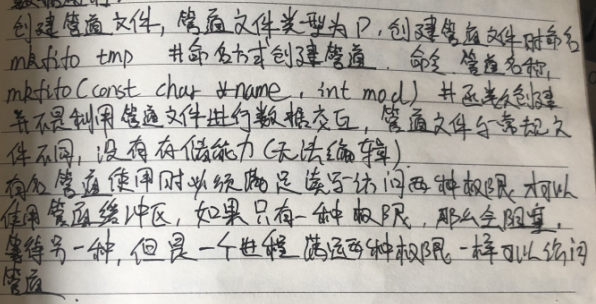 创建管道文件，管道文件类型为P，创建管道文件时命名
mkfifo tmp #命名方式创建管道 命令 管道名称，
mkfifo(const char *name, int mod) #函数创建
并不是利用管道文件进行数据交互，管道文件与常规文
件不同，没有存储能力(无法编辑)
有名管道使用时必须满足读写访问两种权限 才可以
使用管道缓冲区，如果只有一种权限，那么会阻塞，
等待另一种，但是一个进程 满足两种权限一样可以访问
管道